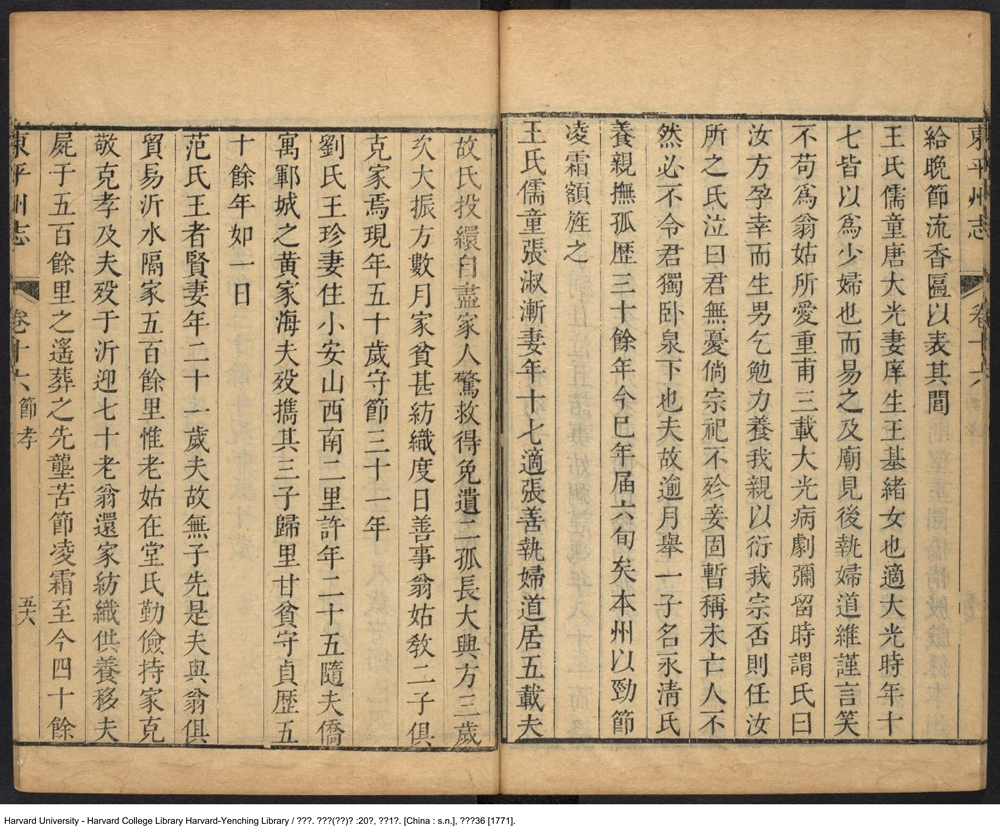 東平州志
卷十六
給晚節流香匾以表其閭
王氏儒童唐大光妻庠生王基緒女也適大光時年十
七皆以爲少婦也而易之及廟見後執婦道維謹言笑
不苟爲翁姑所愛重甫三載大光病劇彌留時謂氏曰
汝方孕幸而生男乞勉力養我親以衍我宗否則任汝
所之氏泣曰君無憂倘宗祀不殄妾固暫稱未亡人不
然必不令君獨卧泉下也夫故逾月舉一子名永清氏
養親撫孤歷三十餘年今巳年届六旬矣本州以勁節
凌霜額旌之
王氏儒童張淑漸妻年十七適張善執婦道居五載夫
故氏投繯自盡家人驚救得免遺二孤長大興方三歲
次大振方數月家貧甚紡織度日善事翁姑敎二子俱
克家焉現年五十歲守節三十一年
劉氏王珍妻住小安山西南二里許年二十五隨夫僑
寓鄆城之黄家海夫歿擕其三子歸里甘貧守貞歷五
十餘年如一日
范氏王者賢妻年二十一歲夫故無子先是夫與翁俱
貿易沂水隔家五百餘里惟老姑在堂氏勤儉持家克
敬克孝及夫歿于沂迎七十老翁還家紡織供養移夫
屍于五百餘里之遙葬之先壟苦節凌霜至今四十餘
東平州志
卷十六 節孝
五六
Harvard University - Harvard College Library Harvard-Yenching Library / ???. ???(??)? :20?, ??1?. [China : s.n.], ???36 [1771].